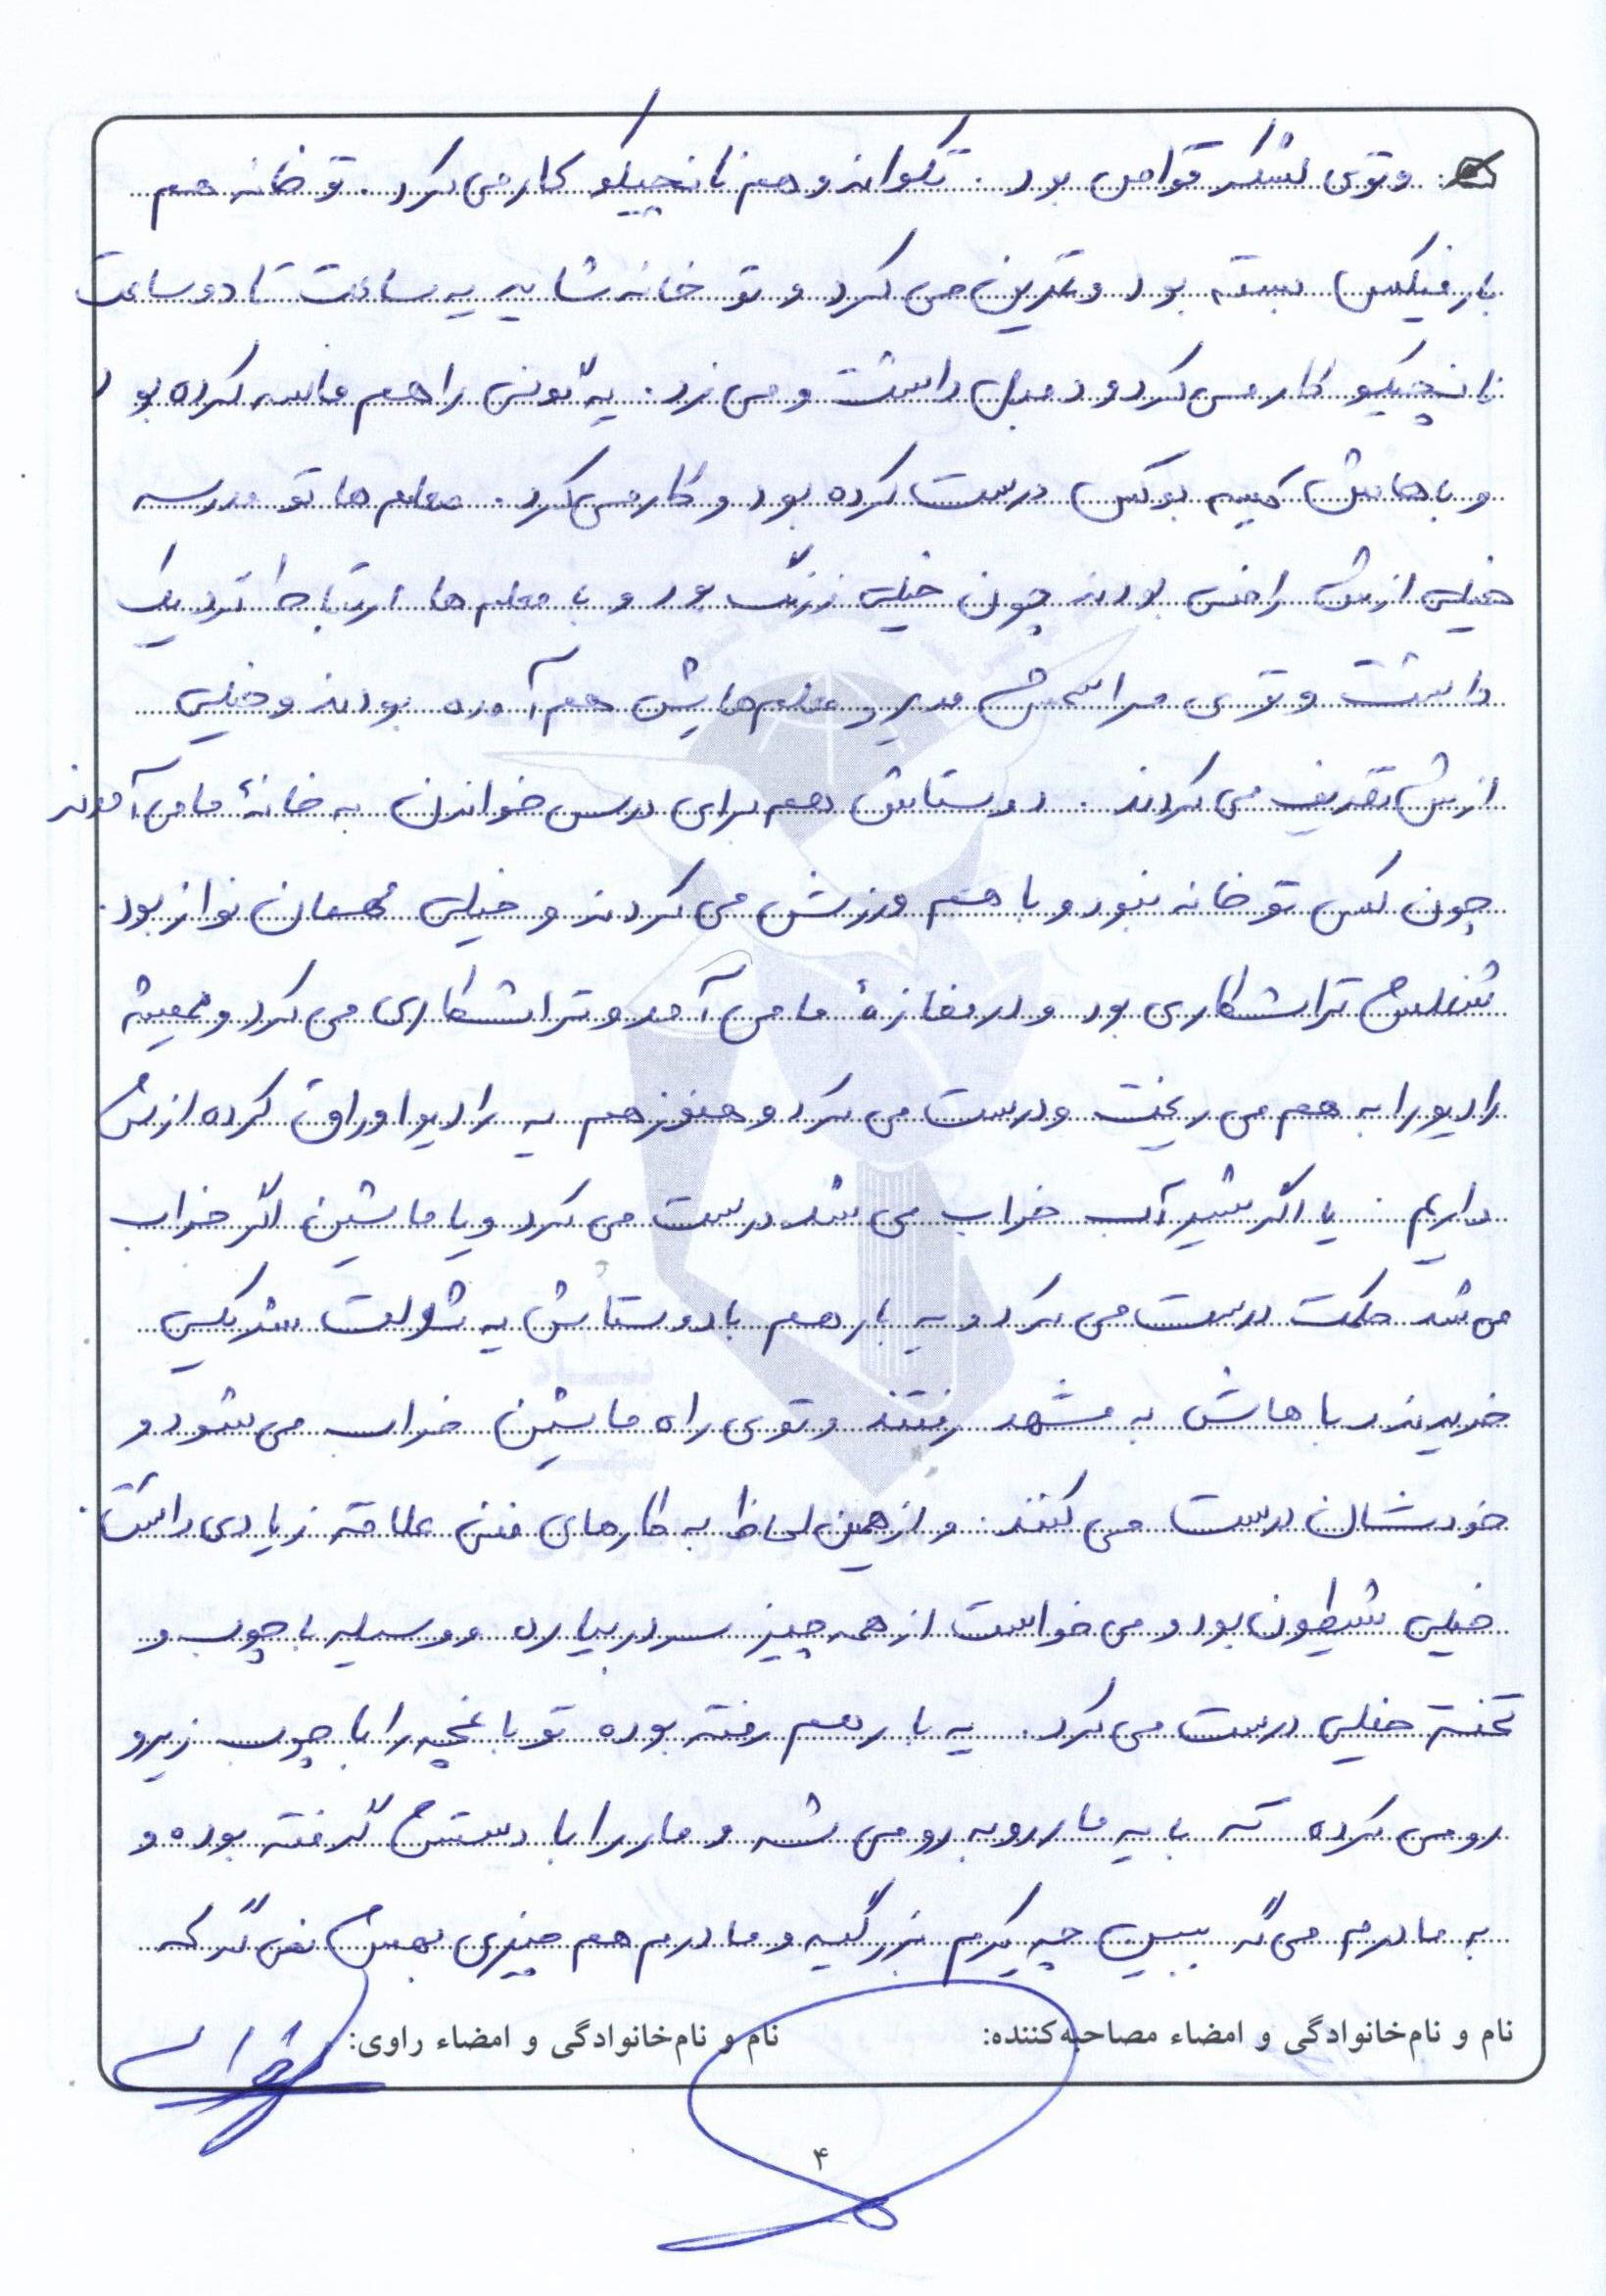 وتوی لشکر قوامی بود. تکواندو هم نانچیکو کار می کرد. تو خانه هم
بارفیکس بسته بود و تمرین می کرد و تو خانه شاید یه ساعت تا دو ساعت
نانچیکو کار می کرد و دمبل داشت و می زد. یه گونی را هم ماسه کرده بود
و باهاش کیسه بوکس درست کرده بود و کار می کرد. معلم ها تو مدرسه
خیلی ازش راضی بودند چون خیلی زرنگ بود و با معلم ها ارتباط نزدیک
داشت و توی مراسمش مدیر و معلم هایش هم آمده بودند و خیلی
ازش تعریف می کردند. دوستاش هم برای درس خواندن به خانهٔ ما می آمدند
چون کسی تو خانه نبود و با هم ورزش می کردند و خیلی مهمان نواز بود.
شغلش تراشکاری بود و در مغازهٔ ما می آمد و تراشکاری می کرد و همیشه
رادیو را به هم می ریخت و درست می کرد و هنوز هم یه رادیو اوراق کرده ازش
داریم. یا اگر شیر آب خراب می شد درست می کرد و یا ماشین اگر خراب
می شد حکمت درست می کرد و یه بار هم با دوستاش یه شولت شریکی
خریدند با هاش به مشهد رفتند و توی راه ماشین خراب می شود و
خودشان درست می کنند. و از همین لحاظ به کارهای فنی علاقه زیادی داشت.
خیلی شیطون بود و می خواست از همه چیز سر در بیاره و وسیله با چوب و
تخته خیلی درست می کرد. یه بار هم رفته بوده تو باغچه را با چوب زیر و
رو می کرده که با یه مار روبه رو می شه و مار را با دستش گرفته بوده و
به مادرم می گه ببین چه کرم بزرگیه و مادرم هم چیزی بهش نمی گه که
نام و نام‌خانوادگی و امضاء مصاحبه‌کننده:
نام و نام‌خانوادگی و امضاء راوی:
۴